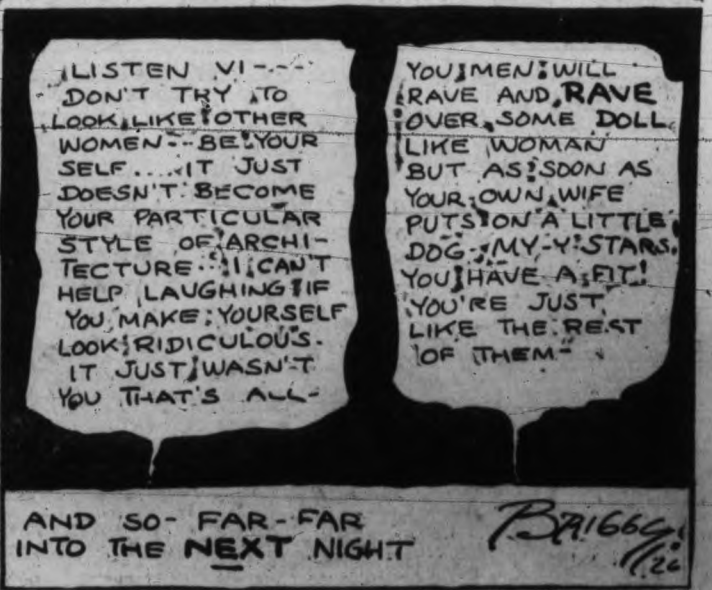 LISTEN VI----
DON'T TRY TO
LOOK LIKE OTHER
WOMEN-- BE YOUR
SELF.... IT JUST
DOESN'T BECOME
YOUR PARTICULAR
STYLE OF ARCHI-
TECTURE-- I CAN'T
HELP LAUGHING IF
YOU MAKE YOURSELF
LOOK RIDICULOUS-
IT JUST WASN'T
YOU THAT'S ALL-
YOU MEN WILL
RAVE AND RAVE
OVER SOME DOLL
LIKE WOMAN
BUT AS SOON AS
YOUR OWN WIFE
PUTS ON A LITTLE
DOG- MY-Y STARS.
YOU HAVE A FIT!
YOU'RE JUST
LIKE THE REST
OF THEM-
AND SO- FAR-FAR
INTO THE NEXT NIGHT
BRIGGS
26